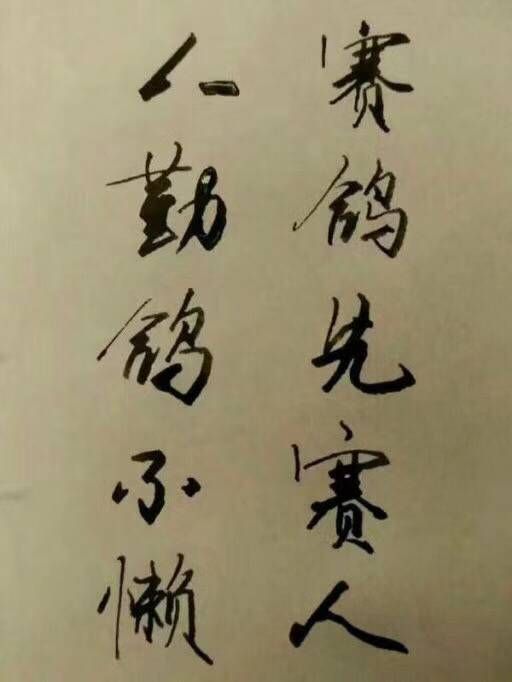 赛鸽先赛人
人勤鸽不懒